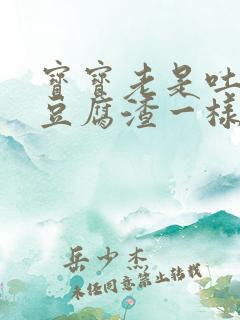 寶寶老是吐
豆腐渣一樣
岳少杰
未经同意禁止转载